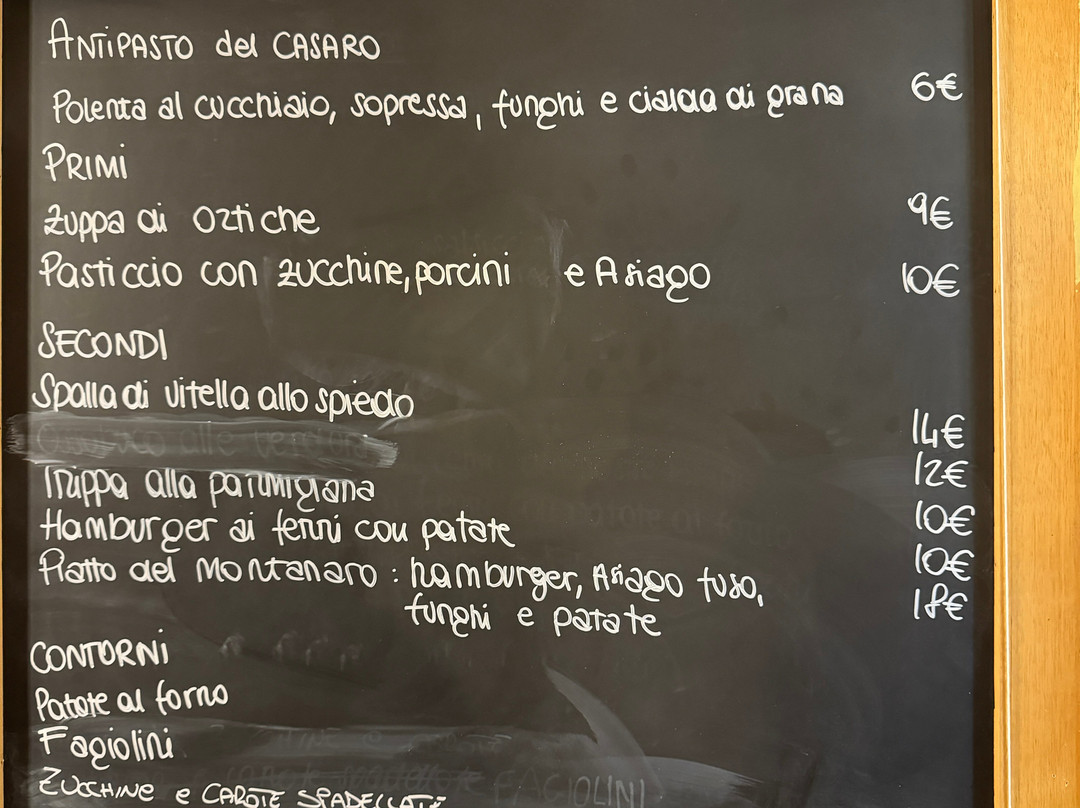 ANTIPASTO del CASARO
Polenta al cucchiaio, sopressa, funghi e cialda di grana 6€
PRIMI
Zuppa di Oztiche 9€
Pasticcio con zucchine, porcini e Asiago 10€
SECONDI
Spalla di vitella allo spiedo 14€
alle verdure 12€
Trippa alla parmigiana 10€
Hamburger ai ferri con patate 10€
Piatto del Montanaro: hamburger, Asiago fuso, 18€
funghi e patate
CONTORNI
Patate al forno
Fagiolini
ZUCCHINE e CAROTE SPADELLATE
FAGIOLINI